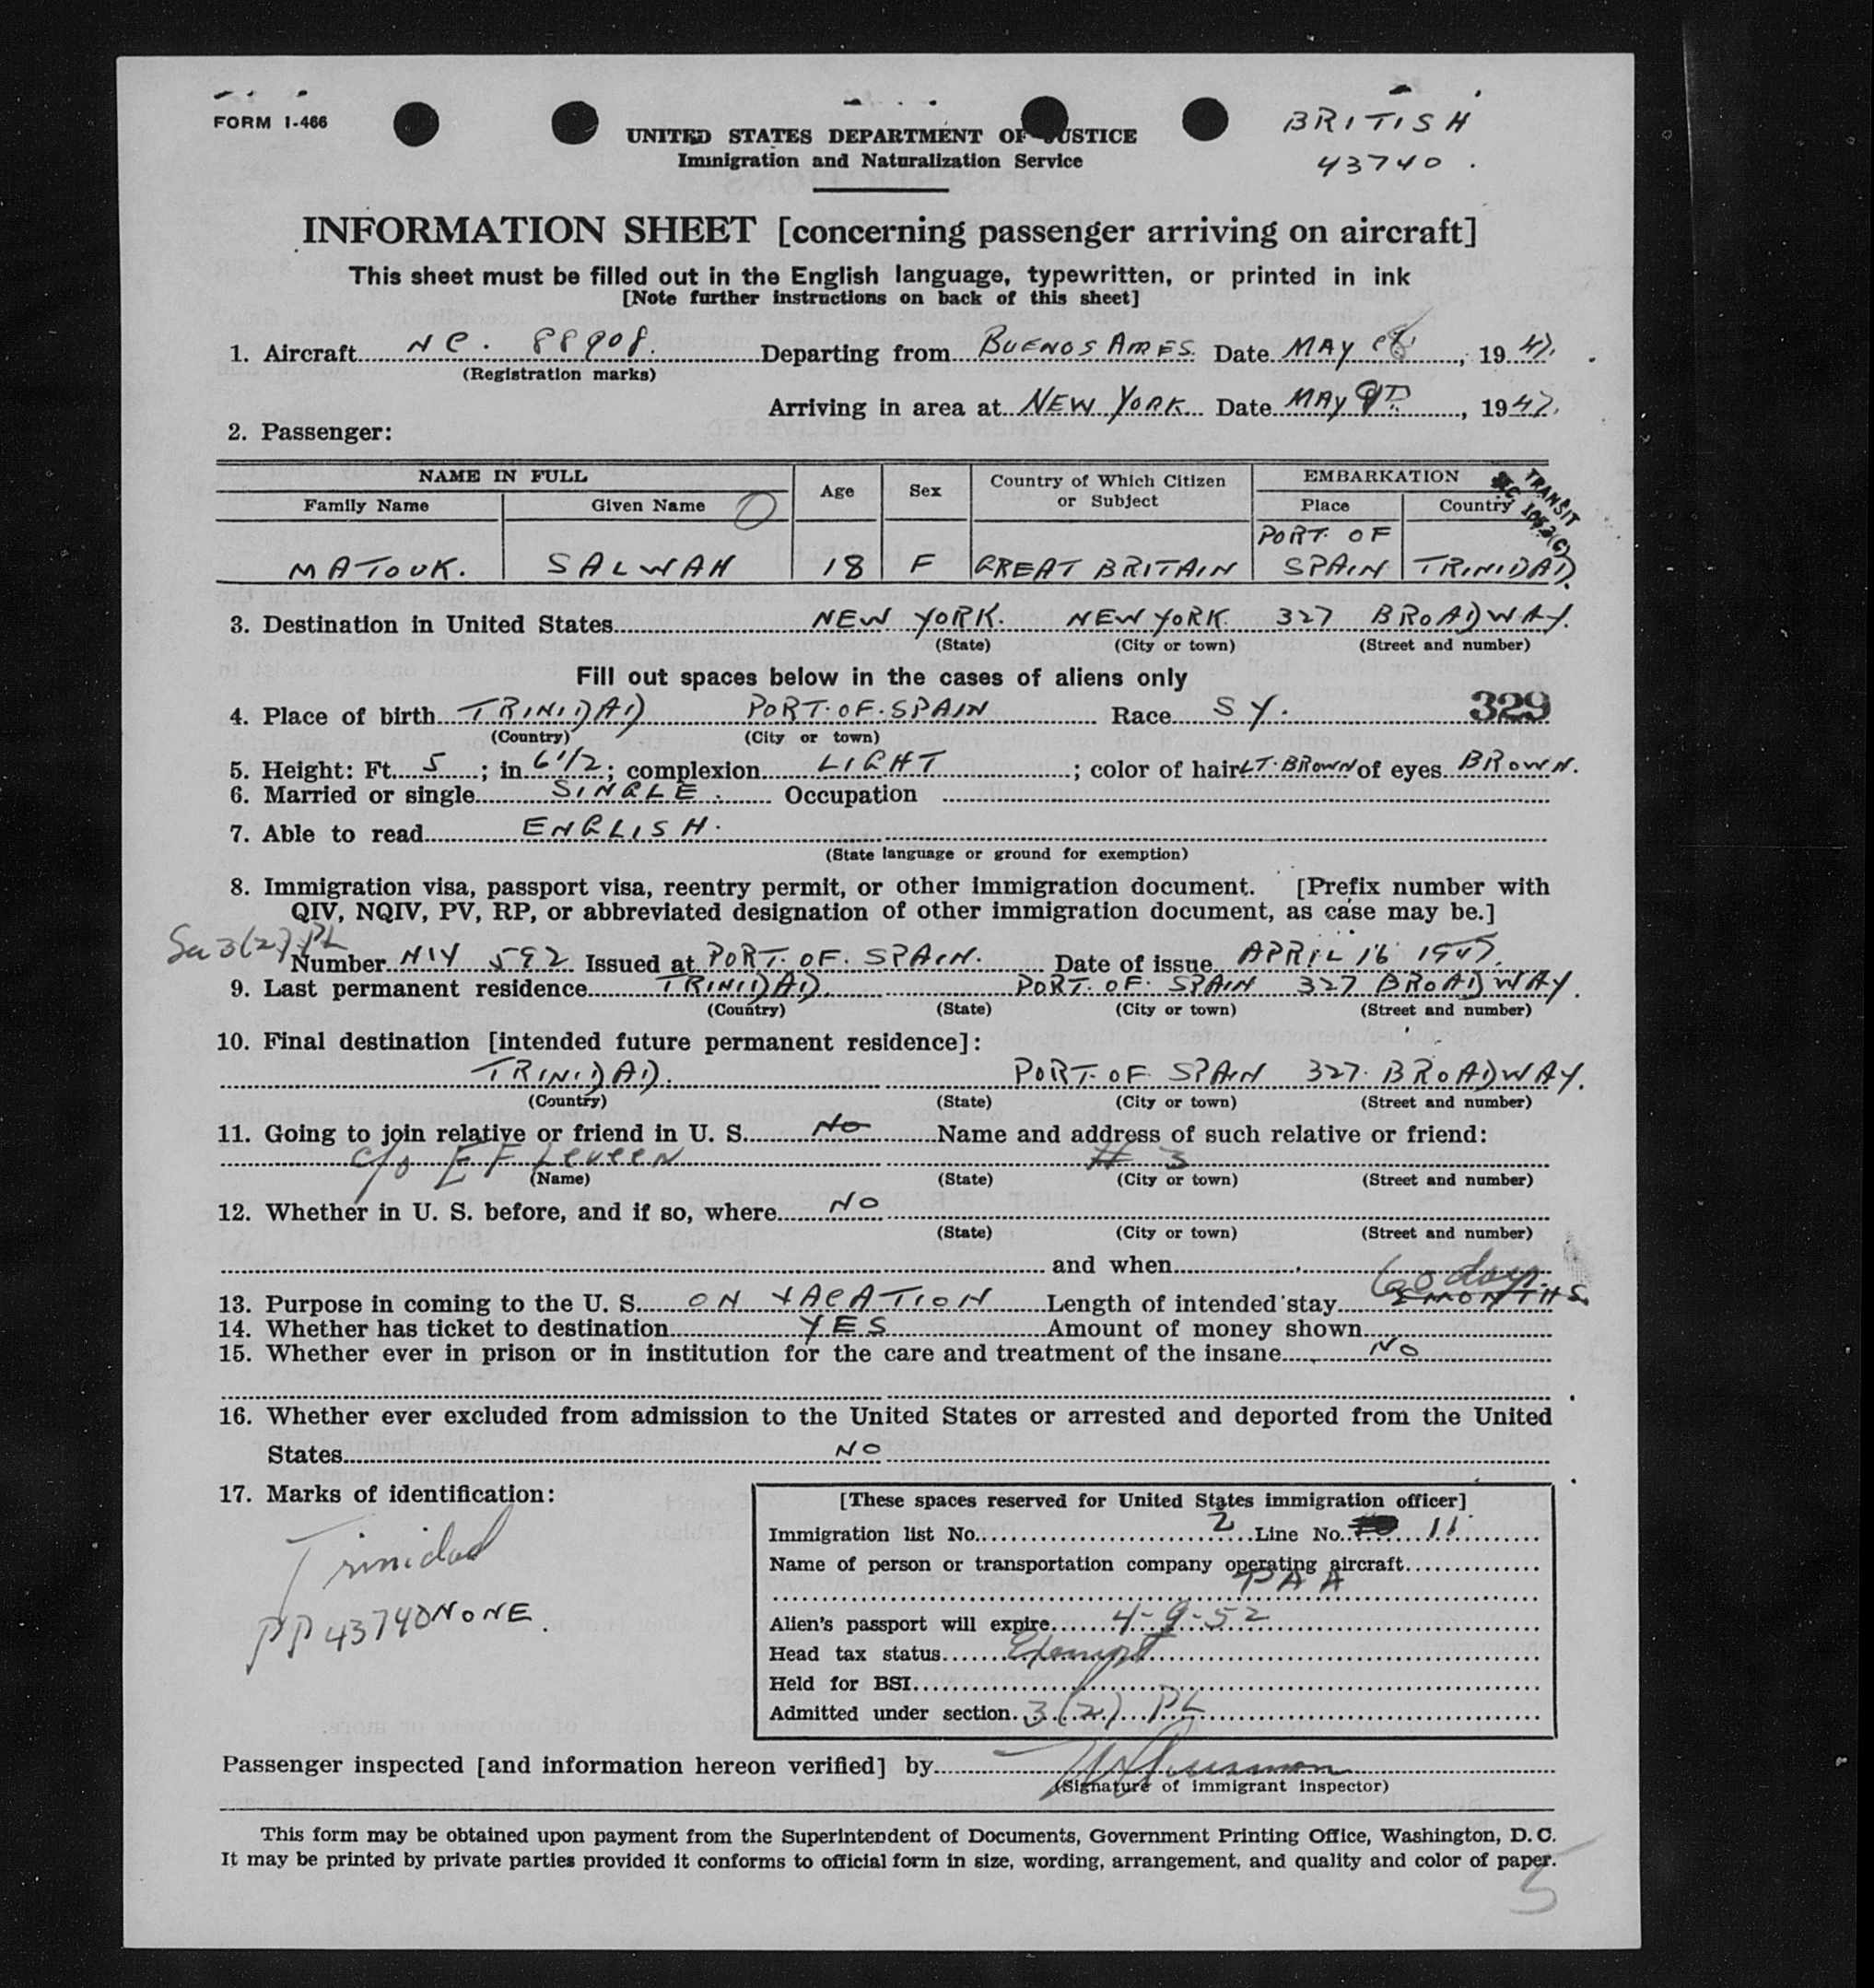 FORM I-466
BRITISH
43740.
UNITED STATES DEPARTMENT OF JUSTICE
Immigration and Naturalization Service
INFORMATION SHEET [concerning passenger arriving on aircraft]
This sheet must be filled out in the English language, typewritten, or printed in ink
[Note further instructions on back of this sheet]
1. Aircraft NC. 88908. Departing from BUENOS AIRES Date MAY 8, 1947.
(Registration marks)
Arriving in area at NEW YORK Date MAY, 1947.
2. Passenger:
NAME IN FULL Age Sex Country of Which Citizen or Subject EMBARKATION
Family Name Given Name Place Country
TRANSIT
MATOUK. SALWAH 18 F GREAT BRITAIN PORT OF SPAIN TRINIDAD.
3. Destination in United States NEW YORK. NEW YORK. 327 BROADWAY.
(State) (City or town) (Street and number)
Fill out spaces below in the cases of aliens only
4. Place of birth TRINIDAD PORT. OF. SPAIN Race SY. 329
(Country) (City or town)
5. Height: Ft. 5; in 6 1/2; complexion LIGHT; color of hair LT. BROWN of eyes BROWN.
6. Married or single SINGLE. Occupation
7. Able to read ENGLISH.
(State language or ground for exemption)
8. Immigration visa, passport visa, reentry permit, or other immigration document. [Prefix number with
QIV, NQIV, PV, RP, or abbreviated designation of other immigration document, as case may be.]
3(2) PL
Number NIV 592 Issued at PORT. OF. SPAIN. Date of issue APRIL 16 1947.
9. Last permanent residence TRINIDAD. PORT. OF. SPAIN 327 BROADWAY.
(Country) (State) (City or town) (Street and number)
10. Final destination [intended future permanent residence]:
TRINIDAD. PORT. OF SPAIN 327. BROADWAY.
(Country) (State) (City or town) (Street and number)
11. Going to join relative or friend in U. S. NO Name and address of such relative or friend:
c/o E F Leveen # 3
(Name) (State) (City or town) (Street and number)
12. Whether in U. S. before, and if so, where NO
(State) (City or town) (Street and number)
and when
60 days.
13. Purpose in coming to the U. S. ON VACATION Length of intended stay MONTHS
14. Whether has ticket to destination YES Amount of money shown
15. Whether ever in prison or in institution for the care and treatment of the insane NO
16. Whether ever excluded from admission to the United States or arrested and deported from the United
States NO
17. Marks of identification:
Trinidad
PP 43740 NONE.
[These spaces reserved for United States immigration officer]
Immigration list No. 2 Line No. 11
Name of person or transportation company operating aircraft
PAA
Alien's passport will expire 4-9-52
Head tax status Exempt
Held for BSI
Admitted under section 3(2) PL
Passenger inspected [and information hereon verified] by
(Signature of immigrant inspector)
This form may be obtained upon payment from the Superintendent of Documents, Government Printing Office, Washington, D. C.
It may be printed by private parties provided it conforms to official form in size, wording, arrangement, and quality and color of paper.
5